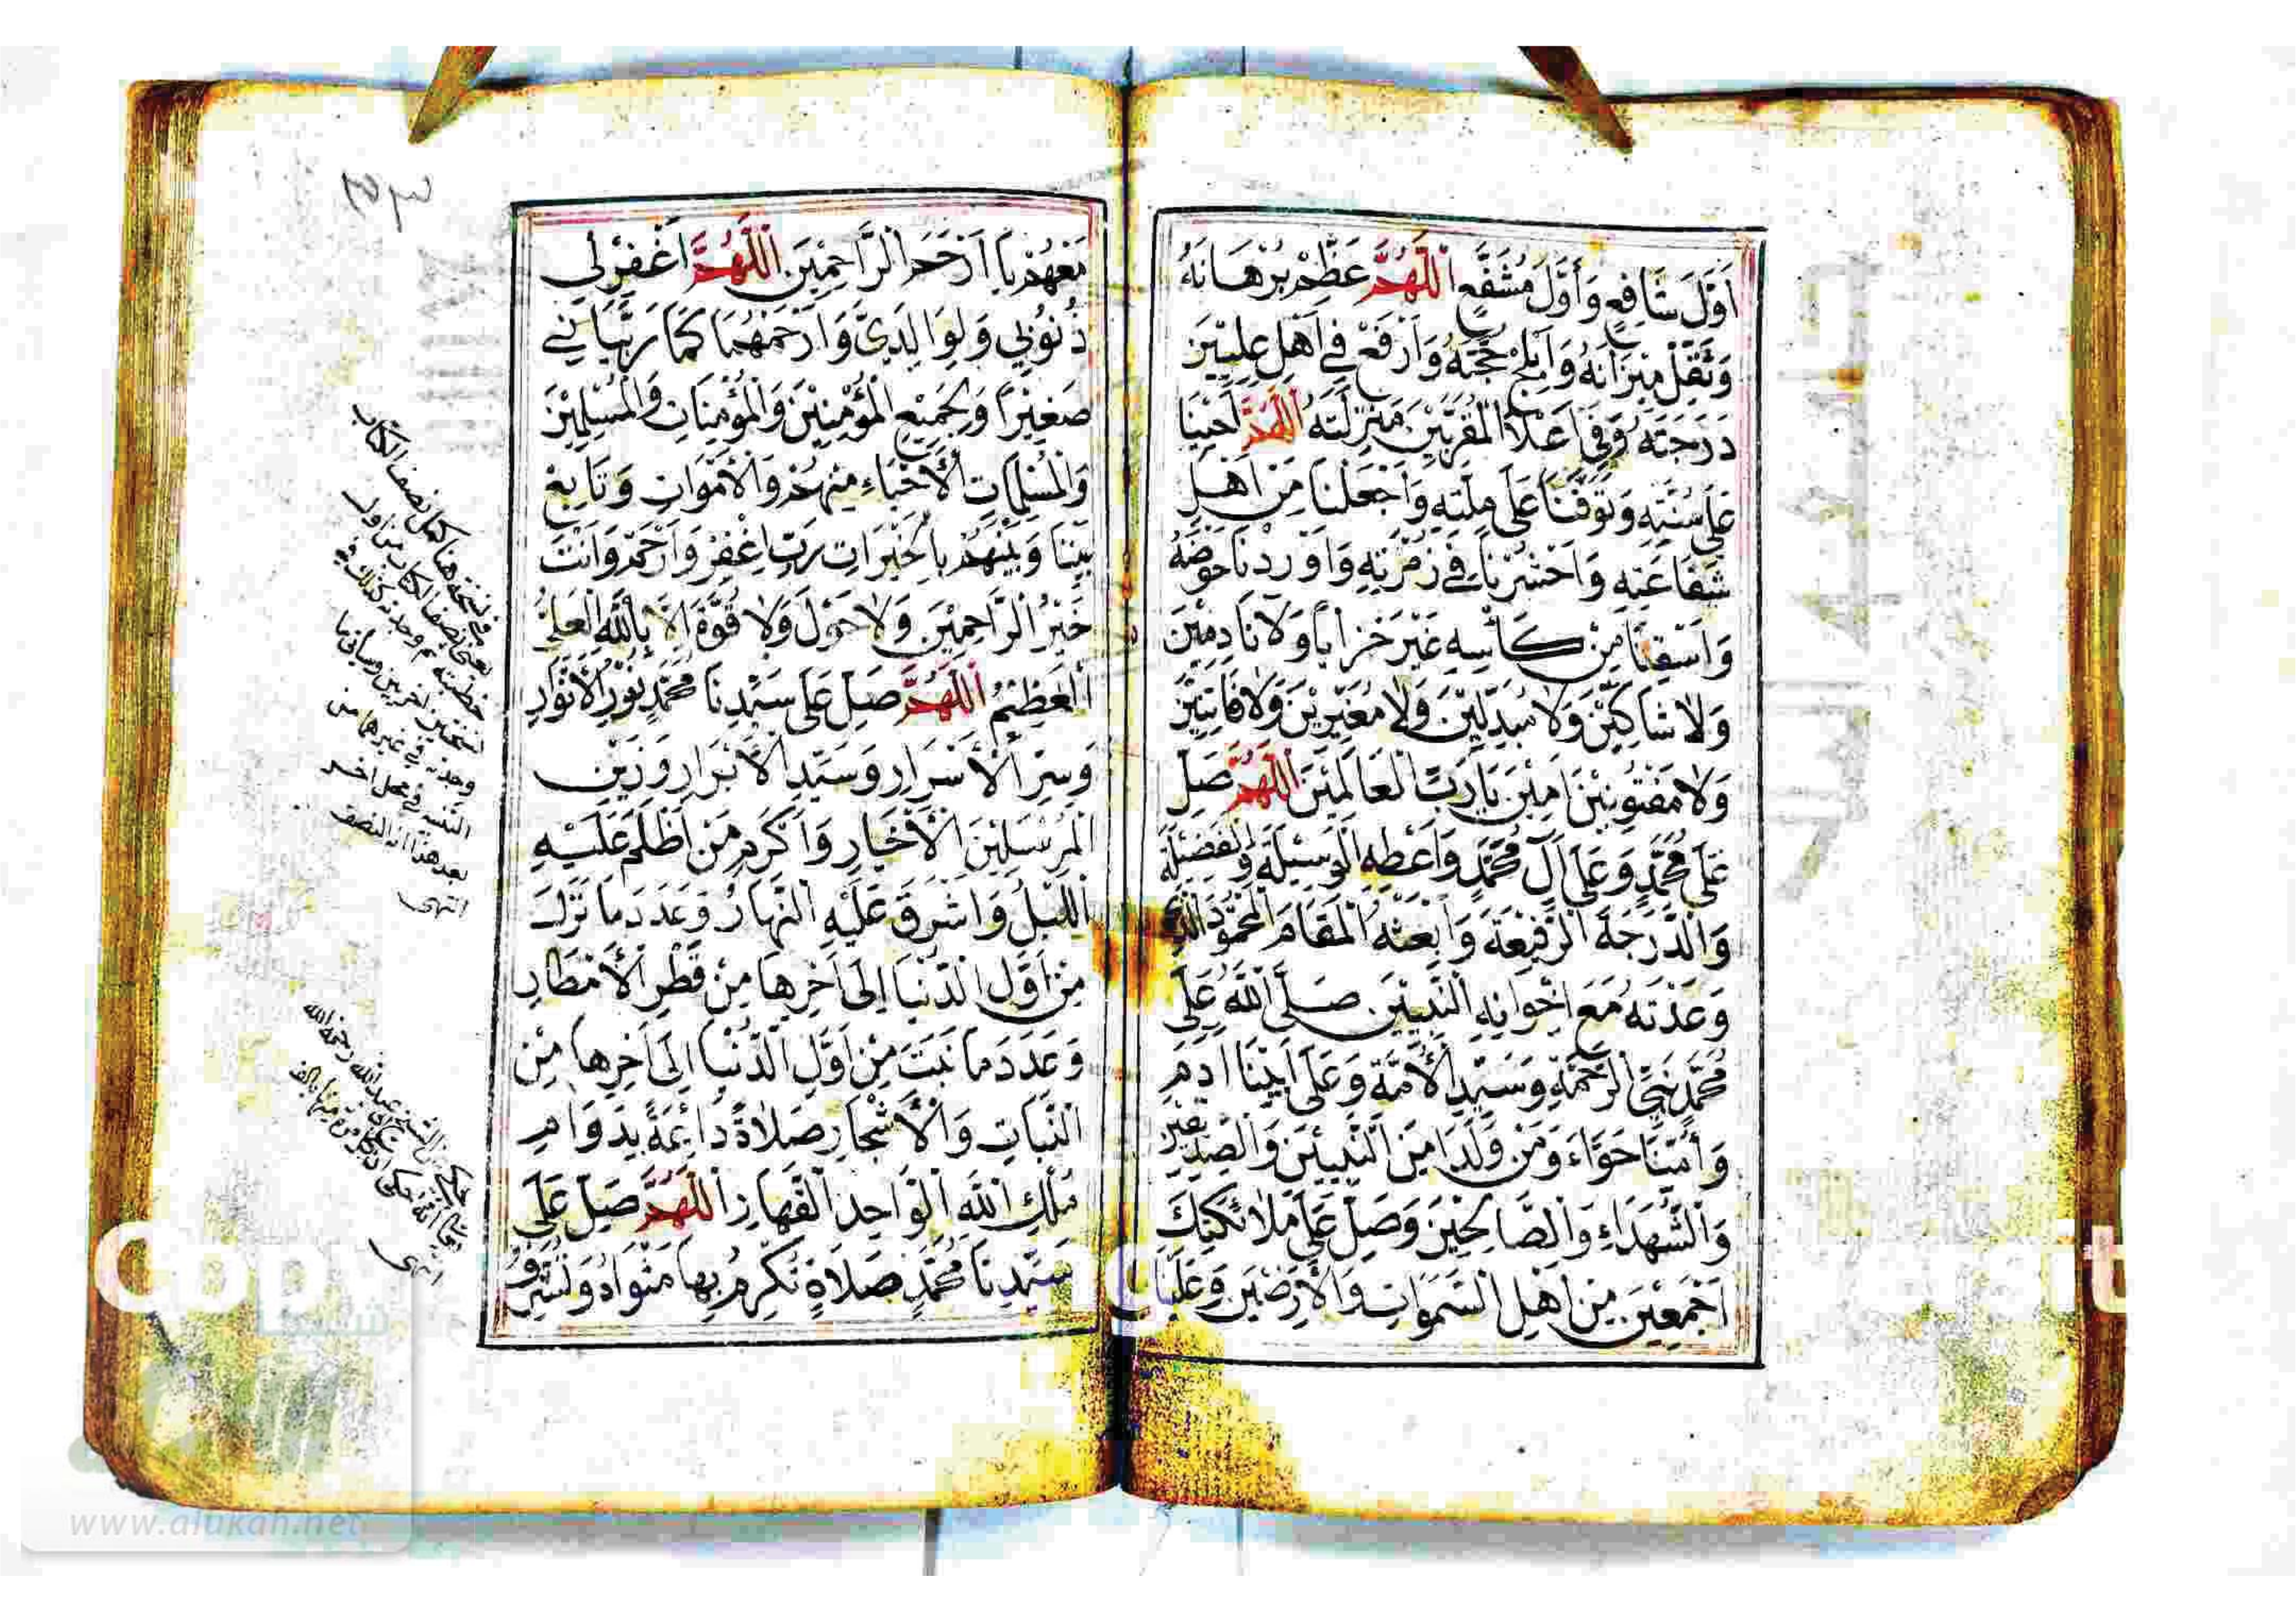 أَوَّلَ شَافِعٍ وَأَوَّلَ مُشَفَّعٍ اَللّٰهُمَّ عَظِّمْ بُرْهَانَهُ
وَثَقِّلْ مِيْزَانَهُ وَأَبْلِجْ حُجَّتَهُ وَارْفَعْ فِي أَهْلِ عِلِّيِّيْنَ
دَرَجَتَهُ وَفِي أَعْلَا الْمُقَرَّبِيْنَ مَنْزِلَتَهُ اَللّٰهُمَّ أَحْيِنَا
عَلَى سُنَّتِهِ وَتَوَفَّنَا عَلَى مِلَّتِهِ وَاجْعَلْنَا مِنْ أَهْلِ
شَفَاعَتِهِ وَاحْشُرْنَا فِي زُمْرَتِهِ وَأَوْرِدْنَا حَوْضَهُ
وَاسْقِنَا مِنْ كَأْسِهِ غَيْرَ خَزَايَا وَلَا نَادِمِيْنَ
وَلَا شَاكِّيْنَ وَلَا مُبَدِّلِيْنَ وَلَا مُغَيِّرِيْنَ وَلَا فَاتِنِيْنَ
وَلَا مَفْتُوْنِيْنَ اٰمِيْنَ يَا رَبَّ الْعَالَمِيْنَ اَللّٰهُمَّ صَلِّ
عَلَى مُحَمَّدٍ وَعَلَى آلِ مُحَمَّدٍ وَأَعْطِهِ الْوَسِيْلَةَ وَالْفَضِيْلَةَ
وَالدَّرَجَةَ الرَّفِيْعَةَ وَابْعَثْهُ الْمَقَامَ الْمَحْمُوْدَ الَّذِي
وَعَدْتَهُ مَعَ إِخْوَانِهِ النَّبِيِّيْنَ صَلَّى اللهُ عَلَى
مُحَمَّدٍ نَبِيِّ الرَّحْمَةِ وَسَيِّدِ الْأُمَّةِ وَعَلَى أَبِيْنَا اٰدَمَ
وَأُمِّنَا حَوَّاءَ وَمَنْ وَلَدَا مِنَ النَّبِيِّيْنَ وَالصِّدِّيْقِيْنَ
وَالشُّهَدَاءِ وَالصَّالِحِيْنَ وَصَلِّ عَلَى مَلَائِكَتِكَ
أَجْمَعِيْنَ مِنْ أَهْلِ السَّمٰوَاتِ وَالْأَرَضِيْنَ وَعَلَيْنَا
٣٥٣
مَعَهُمْ يَا أَرْحَمَ الرَّاحِمِيْنَ اَللّٰهُمَّ اغْفِرْ لِي
ذُنُوْبِي وَلِوَالِدَيَّ وَارْحَمْهُمَا كَمَا رَبَّيَانِي
صَغِيْرًا وَلِجَمِيْعِ الْمُؤْمِنِيْنَ وَالْمُؤْمِنَاتِ وَالْمُسْلِمِيْنَ
وَالْمُسْلِمَاتِ الْأَحْيَاءِ مِنْهُمْ وَالْأَمْوَاتِ وَتَابِعْ
بَيْنَنَا وَبَيْنَهُمْ بِالْخَيْرَاتِ رَبِّ اغْفِرْ وَارْحَمْ وَأَنْتَ
خَيْرُ الرَّاحِمِيْنَ وَلَا حَوْلَ وَلَا قُوَّةَ إِلَّا بِاللهِ الْعَلِيِّ
الْعَظِيْمِ اَللّٰهُمَّ صَلِّ عَلَى سَيِّدِنَا مُحَمَّدٍ نُوْرِ الْأَنْوَارِ
وَسِرِّ الْأَسْرَارِ وَسَيِّدِ الْأَبْرَارِ وَزَيْنِ
الْمُرْسَلِيْنَ الْأَخْيَارِ وَأَكْرَمِ مَنْ أَظْلَمَ عَلَيْهِ
اللَّيْلُ وَأَشْرَقَ عَلَيْهِ النَّهَارُ وَعَدَدَ مَا نَزَلَ
مِنْ أَوَّلِ الدُّنْيَا إِلَى اٰخِرِهَا مِنْ قَطْرِ الْأَمْطَارِ
وَعَدَدَ مَا نَبَتَ مِنْ أَوَّلِ الدُّنْيَا إِلَى اٰخِرِهَا مِنَ
النَّبَاتِ وَالْأَشْجَارِ صَلَاةً دَائِمَةً بِدَوَامِ
مُلْكِ اللهِ الْوَاحِدِ الْقَهَّارِ اَللّٰهُمَّ صَلِّ عَلَى
سَيِّدِنَا مُحَمَّدٍ صَلَاةً تُكْرِمُ بِهَا مَثْوَاهُ وَتُشَرِّفُ
في نسخة هنا كمل نصف الكتاب
يعني نصف الكتاب من أول
خطبته ثم وجدته كذلك في
نسختين أخريين
وجدته في غيرها من
في محل آخر
بعد هذا النصف
انتهى
انتهى
www.alukah.net